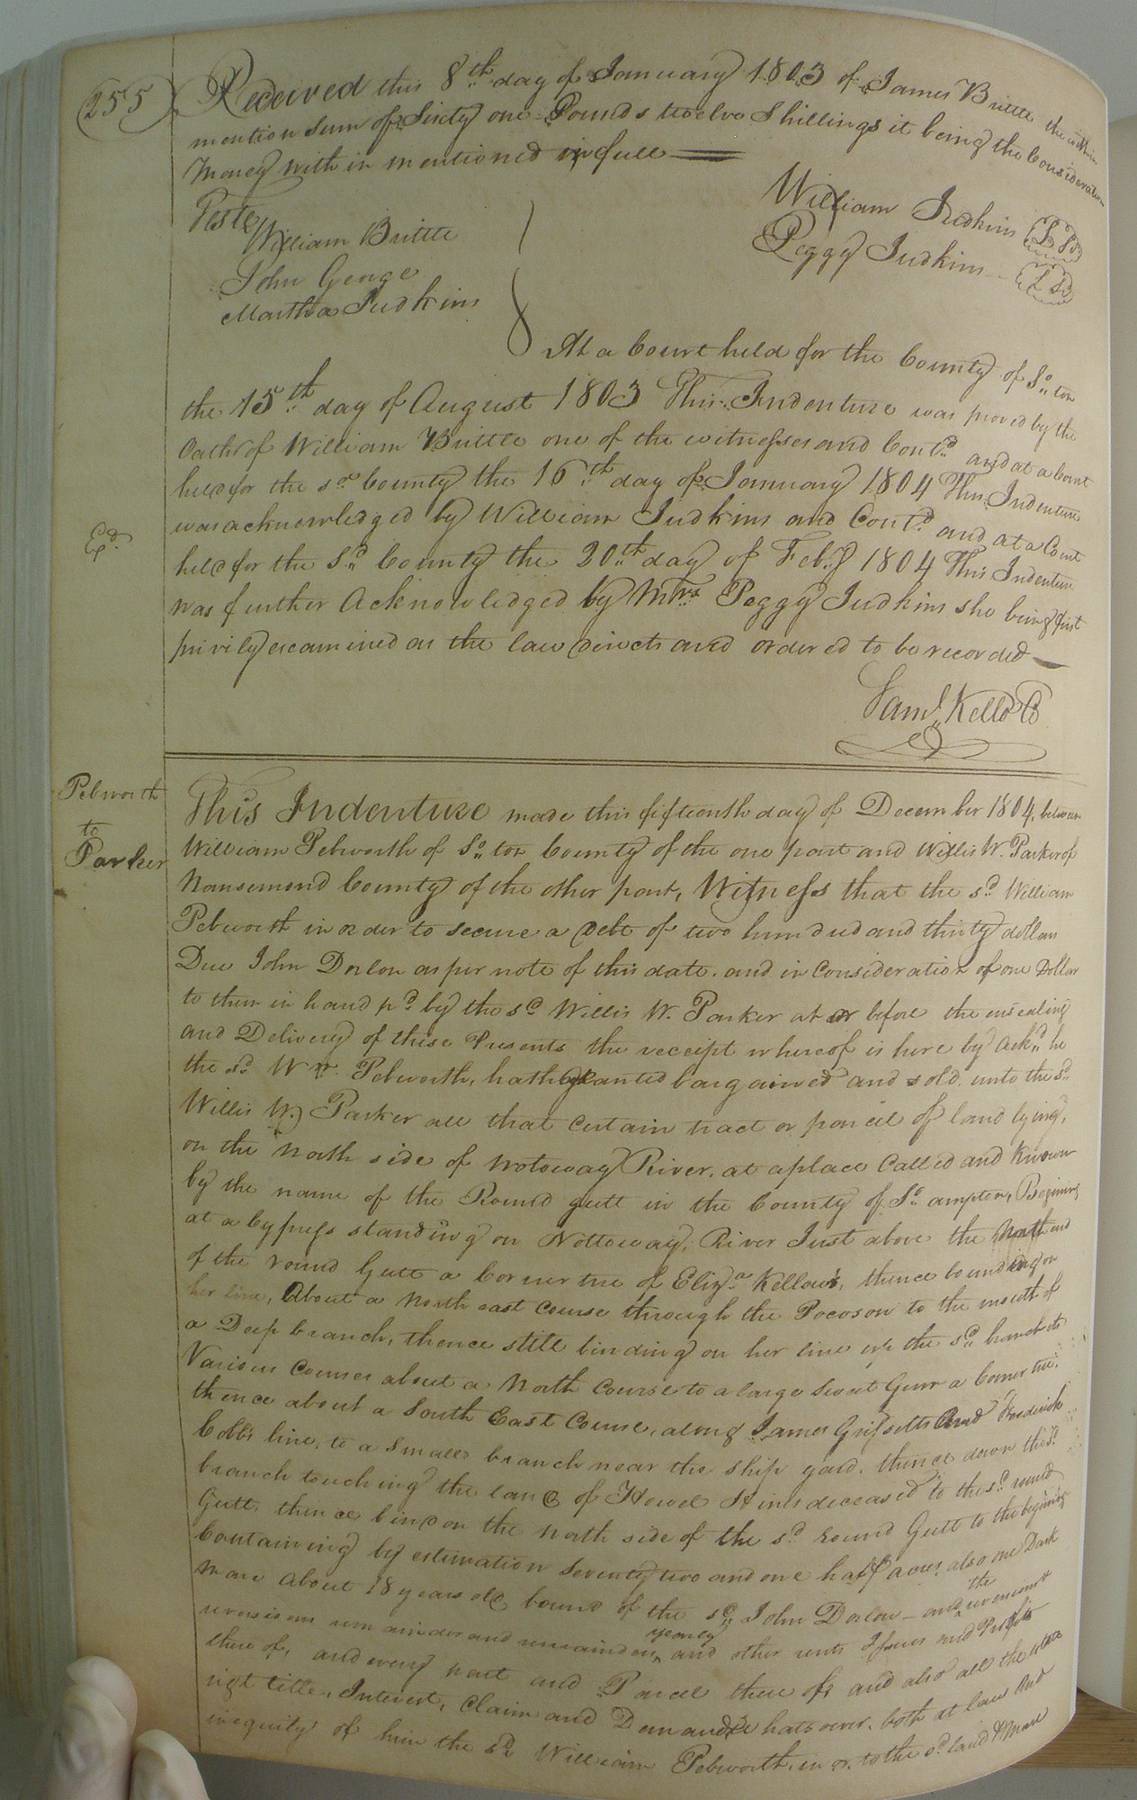 (255)
Received this 8th day of January 1803 of James Brittle the within
mention Sum of Sixty one Pounds twelve Shillings it being the Consideration
Money with in mentioned in full
Teste
William Judkins (LS)
Peggy Judkins (LS)
William Brittle
John George
Martha Judkins
At a Court held for the County of So.ton
the 15th day of August 1803 This Indenture was proved by the
Oath of William Brittle one of the witnesses and Contd and at a Court
held for the sd County the 16th day of January 1804 This Indenture
was acknowledged by William Judkins and Contd and at a Court
Ed.
held for the Sd County the 20th day of Feby 1804 This Indenture
was further Acknowledged by Mrs Peggy Judkins she being first
privily examined as the law directs and ordered to be recorded
Saml. Kello C
Pebworth
to
Parker
This Indenture made this fifteenth day of December 1804, between
William Pebworth of So.ton County of the one part and Willis W. Parker of
Nansemond County of the other part, Witness that the sd William
Pebworth in order to secure a debt of two hundred and thirty dollars
Due John Dorlon as per note of this date. and in Consideration of one Dollar
to them in hand pd by the sd Willis W. Parker at or before the ensealing
and Delivery of these Presents the receipt whereof is here by Ackd he
the sd Wm Pebworth, hath granted bargained and sold unto the sd
Willis W. Parker all that certain tract or parcel of land lying,
on the North side of Notoway River, at a place Called and Known
by the name of the Round gutt in the County of So.ampton, Beginning
at a Cypress standing on Nottoway, River Just above the North end
of the round Gutt a Corner tree of Eliza Kellow's, thence bounding on
her line, About a North east Course through the Pocoson to the mouth of
a Deep branch, thence still binding on her line up the sd branch its
Various Courses about a North Course to a large Sweet Gum a Corner tree.
thence about a South East Course, along James Grissetts And Frederick
Cobb's line, to a Small branch near the ship yard. thence down the sd
branch touching the land of Howel Hines deceased to the sd round
Gutt, thence bind on the north side of the sd round Gutt to the beginning
Containing by estimation Seventy two and one half acres, also one Dark
Mare about 18 years old, bound of the sd John Dorlon - and the revercion &
revercions remainder and remainders, yearly and other rents Issues and Profits
there of, and every part and Parcel there of, and also all the estate
right title, Interest, Claim and Demand whatsoever, both at law and
in equity of him the sd William Pebworth. in or to the sd land & Mare